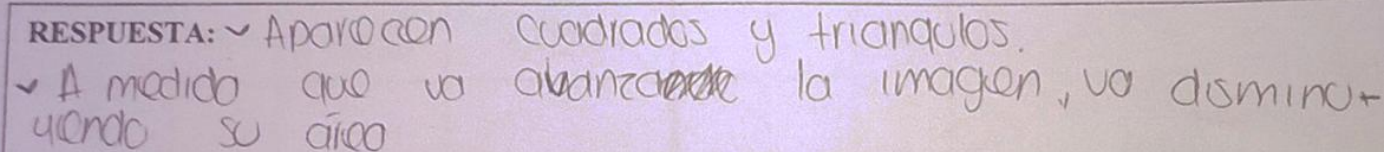 RESPUESTA: Aparecen cuadrados y triangulos.
A medida que va avanzando la imagen, va disminu-
yendo su área